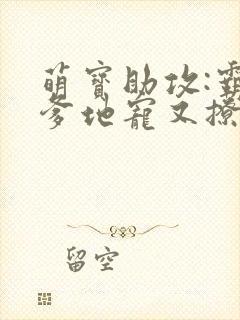 萌寶助攻:霸
爹地寵又撩
留空